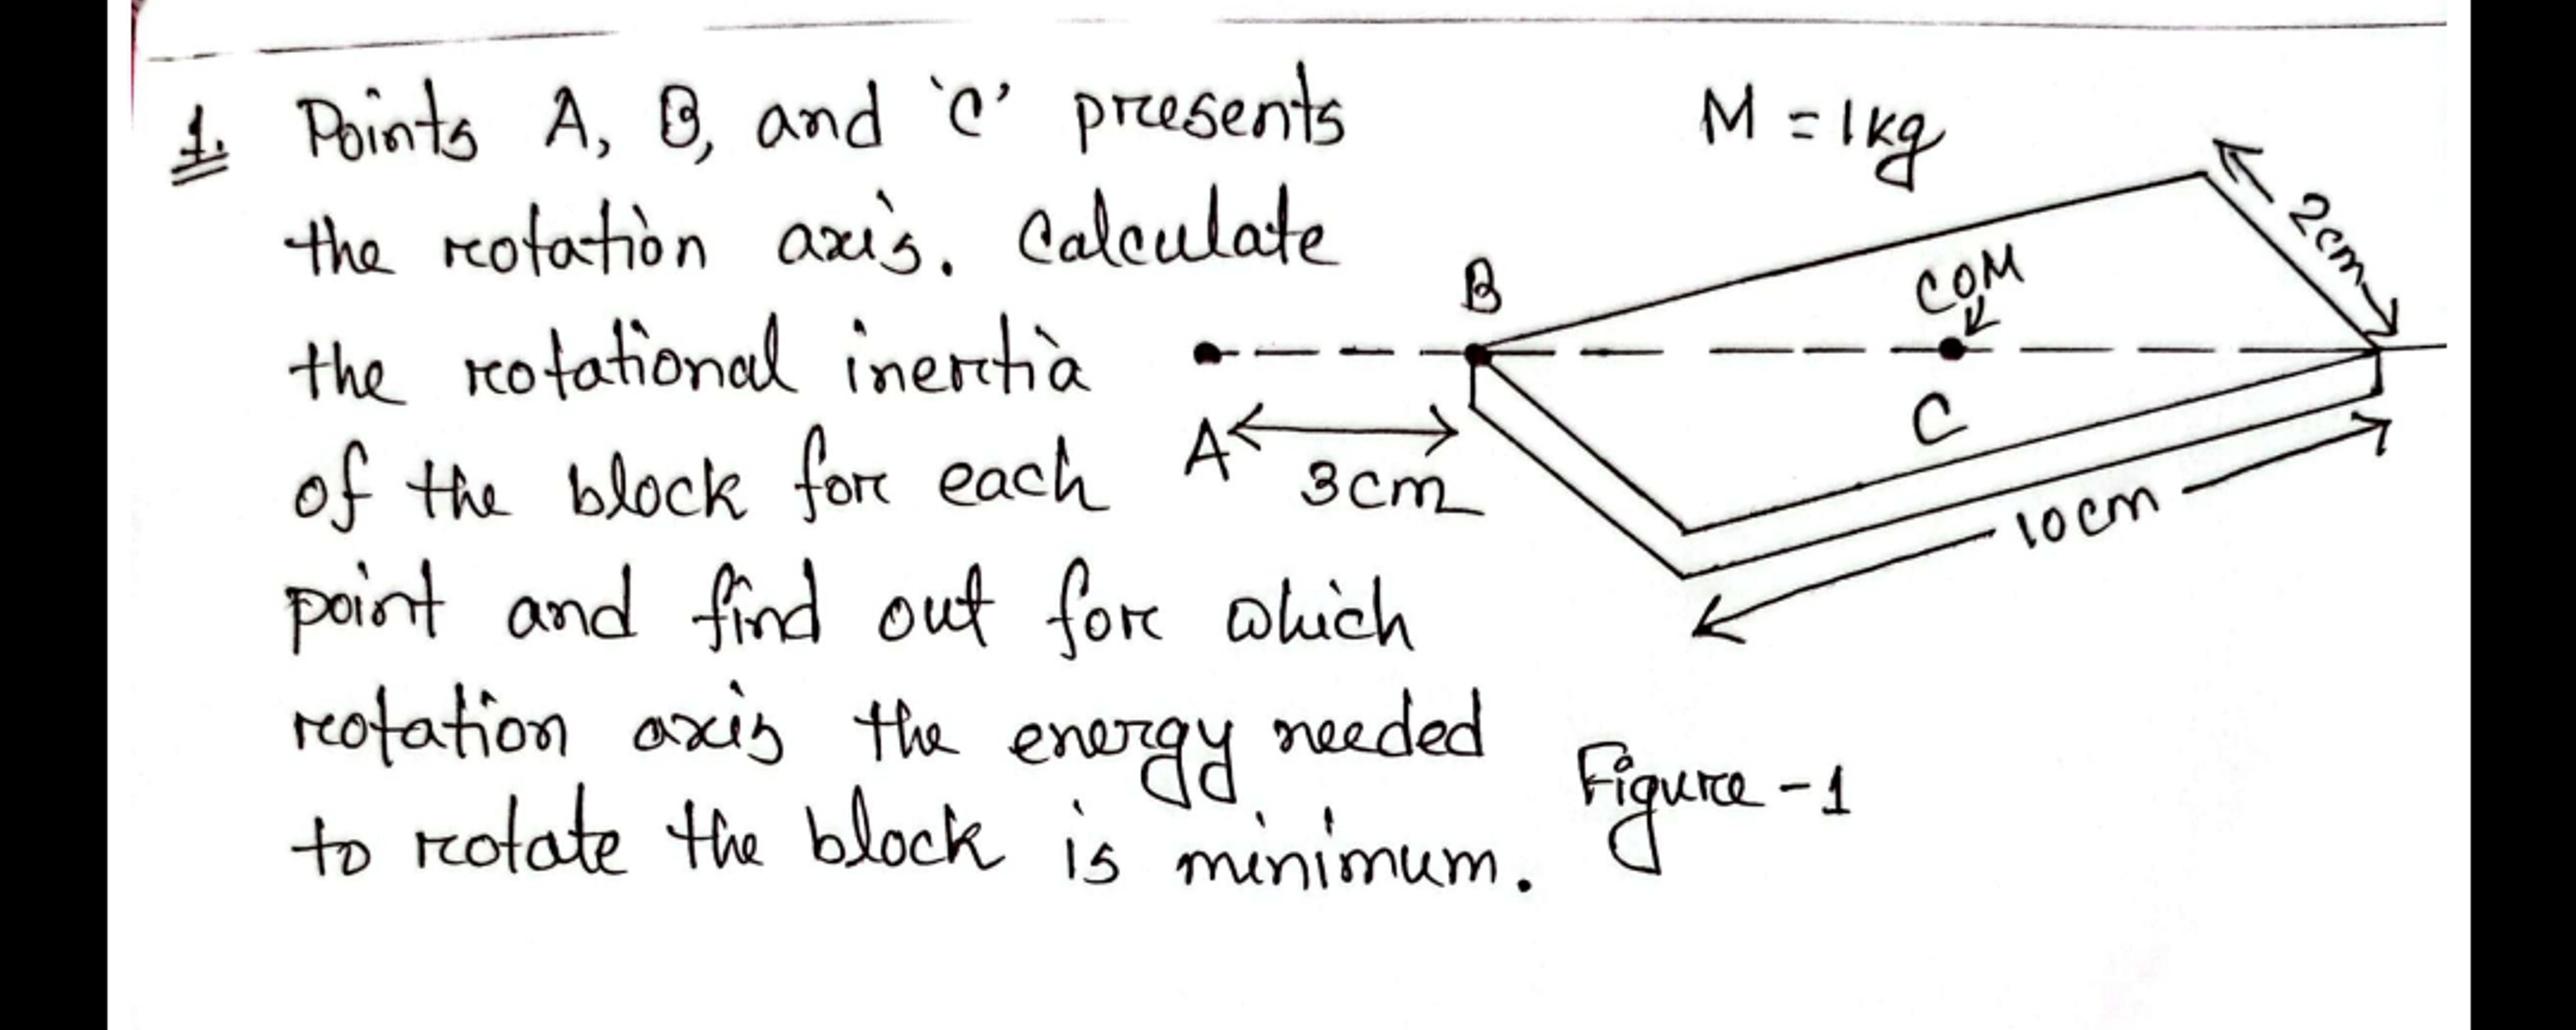 1. Points A, B, and 'C' presents
the rotation axis. Calculate
the rotational inertia
of the block for each
point and find out for which
rotation axis the energy needed
to rotate the block is minimum.
M = 1kg
2cm
COM
B
C
A
3cm
10cm
Figure-1